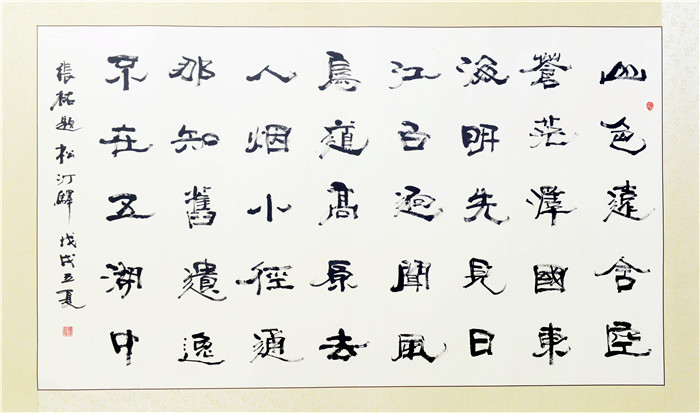 山色遠含空
蒼茫澤國東
海明先見日
江白迥聞風
鳥道高原去
人烟小徑通
那知舊遺逸
不在五湖中
張祜題松汀驛 戊戌立夏